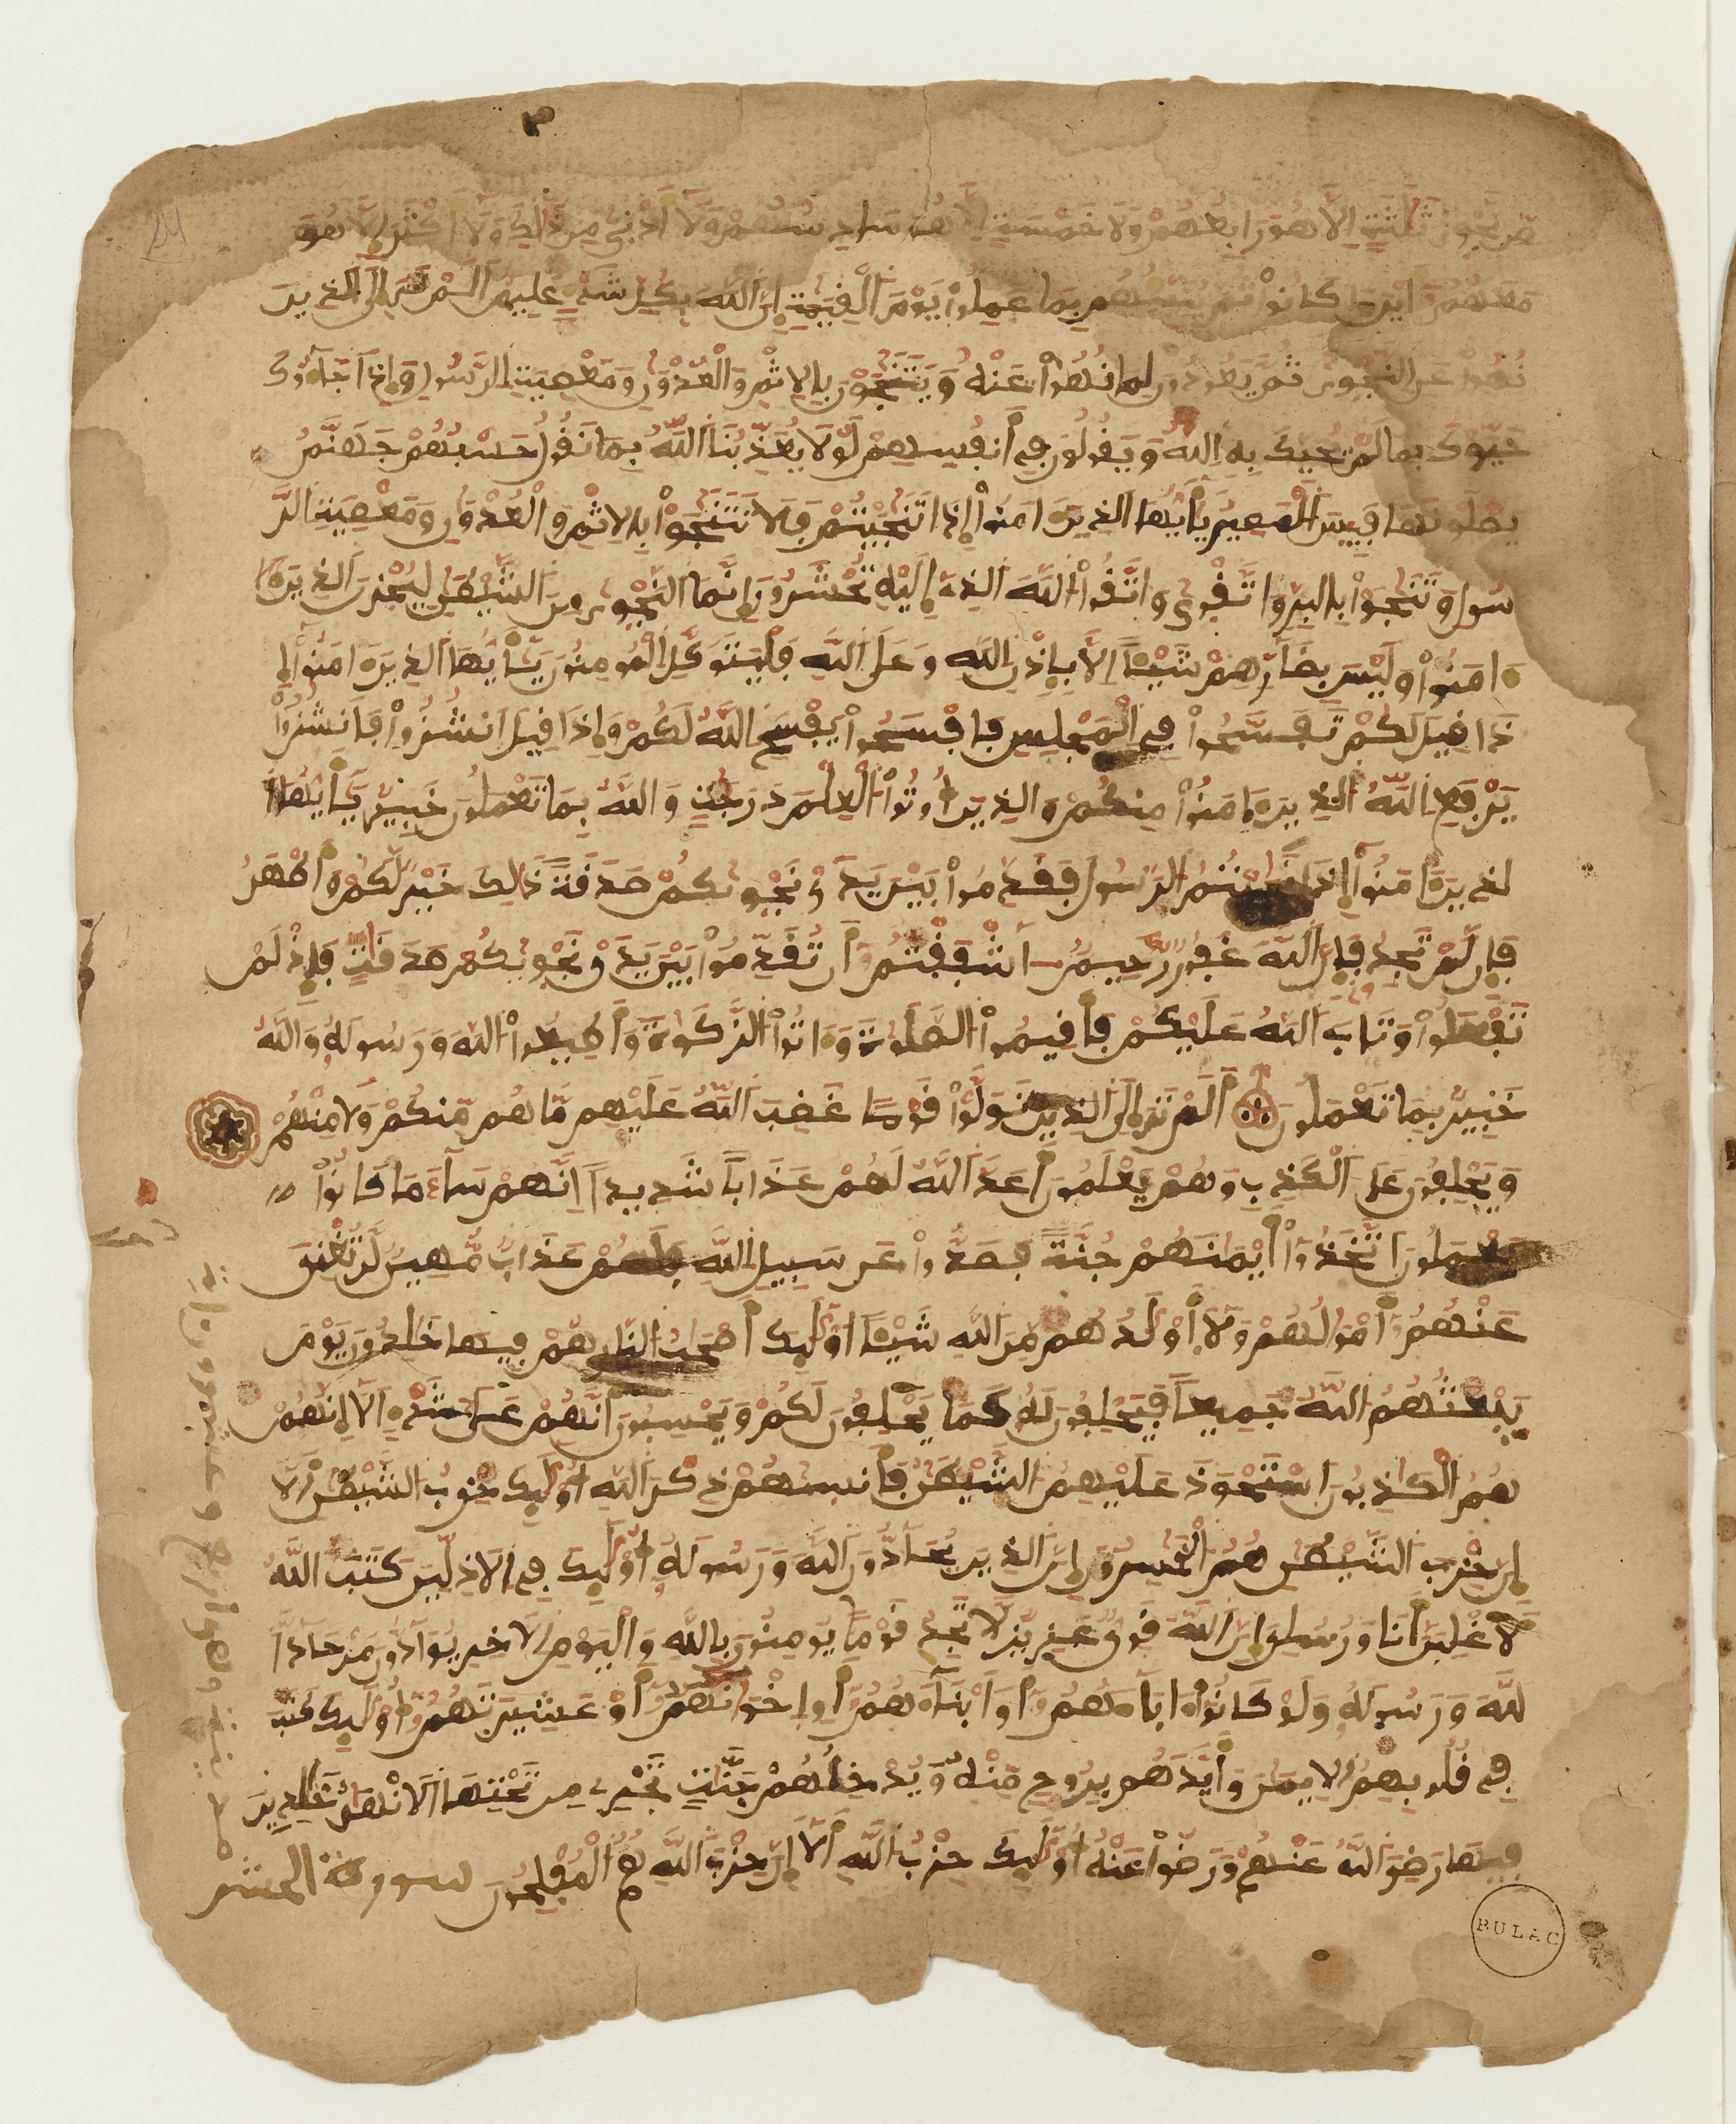 من نجوى ثلثة الا هو رابعهم ولا خمسة الا هو سادسهم ولا أدنى من ذلك ولا أكثر الا هو
معهم أين ما كانوا ثم ينبئهم بما عملوا يوم القيمة إن الله بكل شيء عليم الم تر الى الذين
نهوا عن النجوى ثم يعودون لما نهوا عنه ويتنجون بالاثم والعدون ومعصيت الرسول وإذا جاءوك
حيوك بما لم يحيك به الله ويقولون في أنفسهم لولا يعذبنا الله بما نقول حسبهم جهنم
يصلونها فبيس المصير يأيها الذين ءامنوا إذا تنجيتم فلا تتنجوا بالاثم والعدون ومعصيت الر
سول وتنجوا بالبر واتقوى واتقوا الله الذي إليه تحشرون إنما النجوى من الشيطن ليحزن الذين ءا
ءامنوا وليس بضارهم شيئا الا بإذن الله وعلى الله فليتوكل المومنون يأيها الذين ءامنوا إ
ذا قيل لكم تفسحوا في المجلس فافسحوا يفسح الله لكم وإذا قيل انشزوا فانشزوا
يرفع الله الذين ءامنوا منكم والذين أوتوا العلم درجت والله بما تعملون خبير يأيها ا
لذين ءامنوا إذا نجيتم الرسول فقدموا بين يدى نجويكم صدقة ذلك خير لكم وأطهر
فإن لم تجدوا فإن الله غفور رحيم ءاشفقتم أن تقدموا بين يدى نجويكم صدقت فإذ لم
تفعلوا وتاب الله عليكم فأقيموا الصلوة وءاتوا الزكوة وأطيعوا الله ورسوله والله
خبير بما تعملون ألم تر إلى الذين تولوا قوما غضب الله عليهم ما هم منكم ولا منهم
ويحلفون على الكذب وهم يعلمون أعد الله لهم عذابا شديدا انهم ساء ما كانوا
يعملون اتخذوا أيمنهم جنة فصدوا عن سبيل الله فلهم عذاب مهين لن تغني
عنهم أمولهم ولا أولدهم من الله شيئا أوليك أصحب النار هم فيها خلدون يوم
يبعثهم الله جميعا فيحلفون له كما يحلفون لكم ويحسبون أنهم على شيء الا إنهم
هم الكذبون استحوذ عليهم الشيطن فأنسيهم ذكر الله أوليك حزب الشيطن الا
إن حزب الشيطن هم الخسرون إن الذين يحادون الله ورسوله أوليك في الاذلين كتب الله
لاغلبن أنا ورسلي إن الله قوي عزيز لا تجد قوما يومنون بالله واليوم الاخر يوادون من حاد ا
لله ورسوله ولو كانوا ءاباءهم أو ابناءهم أو اخونهم أو عشيرتهم أوليك كتب
في قلوبهم الايمن وأيدهم بروح منه ويدخلهم جنت تجري من تحتها الانهر خلدين
فيها رضي الله عنهم ورضوا عنه أوليك حزب الله ألا إن حزب الله هم المفلحون سورة الحشر
مدنية وهي اربع وعشرون اية
24
BULAC